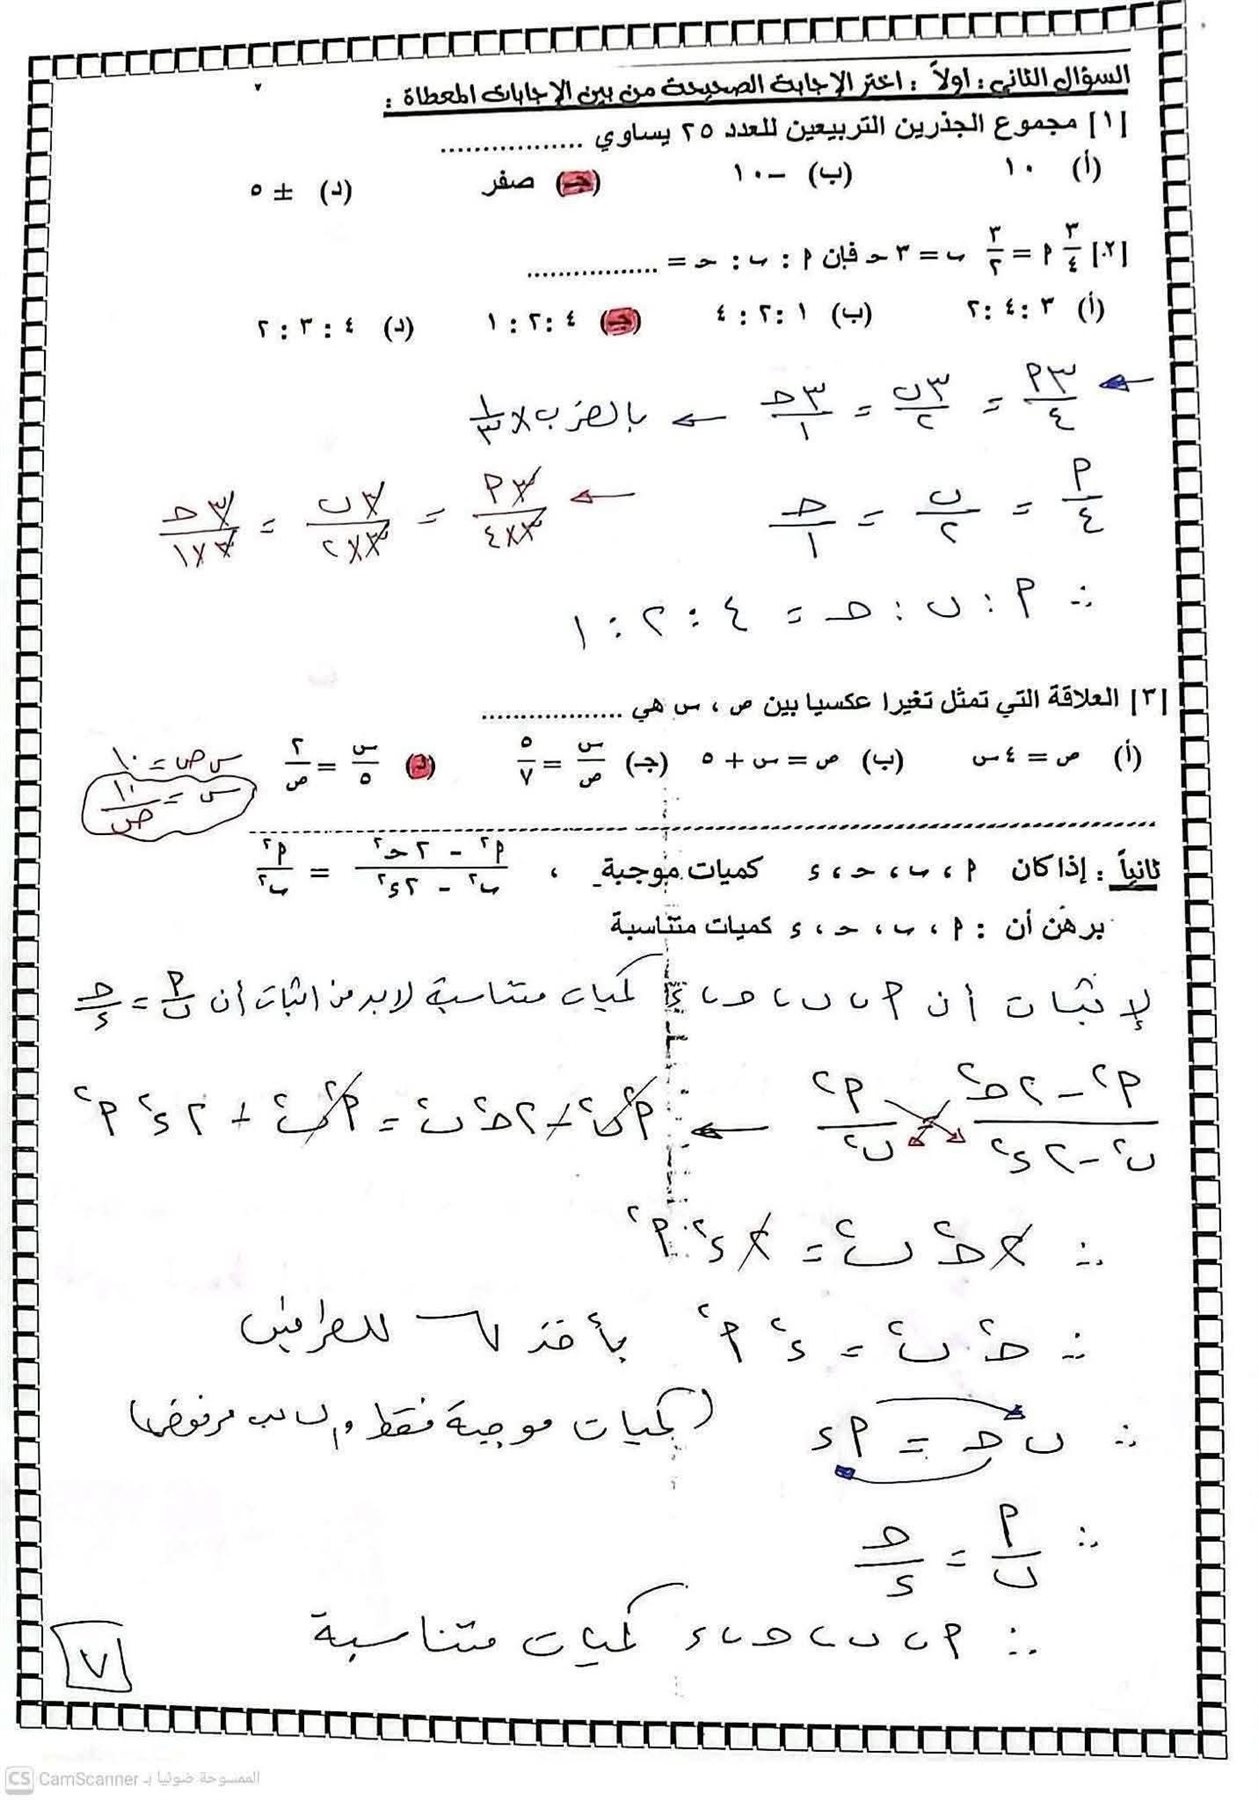 السؤال الثاني : اولاً : اختر الإجابة الصحيحة من بين الإجابات المعطاة :
[١] مجموع الجذرين التربيعين للعدد ٢٥ يساوي .................
(أ) ١٠ (ب) –١٠ (جـ) صفر (د) ± ٥
[٢] ٣/٤ م = ٣/٢ ب = ٣ حـ فإن م : ب : حـ = ................
(أ) ٣ : ٤ : ٢ (ب) ١ : ٢ : ٤ (جـ) ٤ : ٢ : ١ (د) ٤ : ٣ : ٢
← ٣م/٤ = ٣ب/٢ = ٣حـ/١ ← بالضرب × ١/٣
م/٤ = ب/٢ = حـ/١ ← ٣م/٣×٤ = ٣ب/٣×٢ = ٣حـ/٣×١
∴ م : ب : حـ = ٤ : ٢ : ١
[٣] العلاقة التي تمثل تغيرا عكسيا بين ص ، س هي .................
(أ) ص = ٤ س (ب) ص = س + ٥ (جـ) س/ص = ٥/٧ (د) س/٥ = ٢/ص
س ص = ١٠
س = ١٠/ص
ثانياً : إذا كان م ، ب ، حـ ، ء كميات موجبة ، م² – ٢ حـ² / ب² – ٢ء² = م²/ب²
برهن أن : م ، ب ، حـ ، ء كميات متناسبة
لإثبات أن م ، ب ، حـ ، ء كميات متناسبة لابد من اثبات أن م/ب = حـ/ء
م² – ٢حـ² / ب² – ٢ء² = م²/ب² ← م²ب² + ٢حـ²ب² = م²ب² + ٢ء²م²
∴ ٢حـ²ب² = ٢ء²م²
∴ حـ²ب² = ء²م² بأخذ √ للطرفين
∴ ب حـ = م ء (كميات موجبة فقط والسالب مرفوض)
∴ م/ب = حـ/ء
∴ م ، ب ، حـ ، ء كميات متناسبة
٧
CS CamScanner الممسوحة ضوئيا بـ